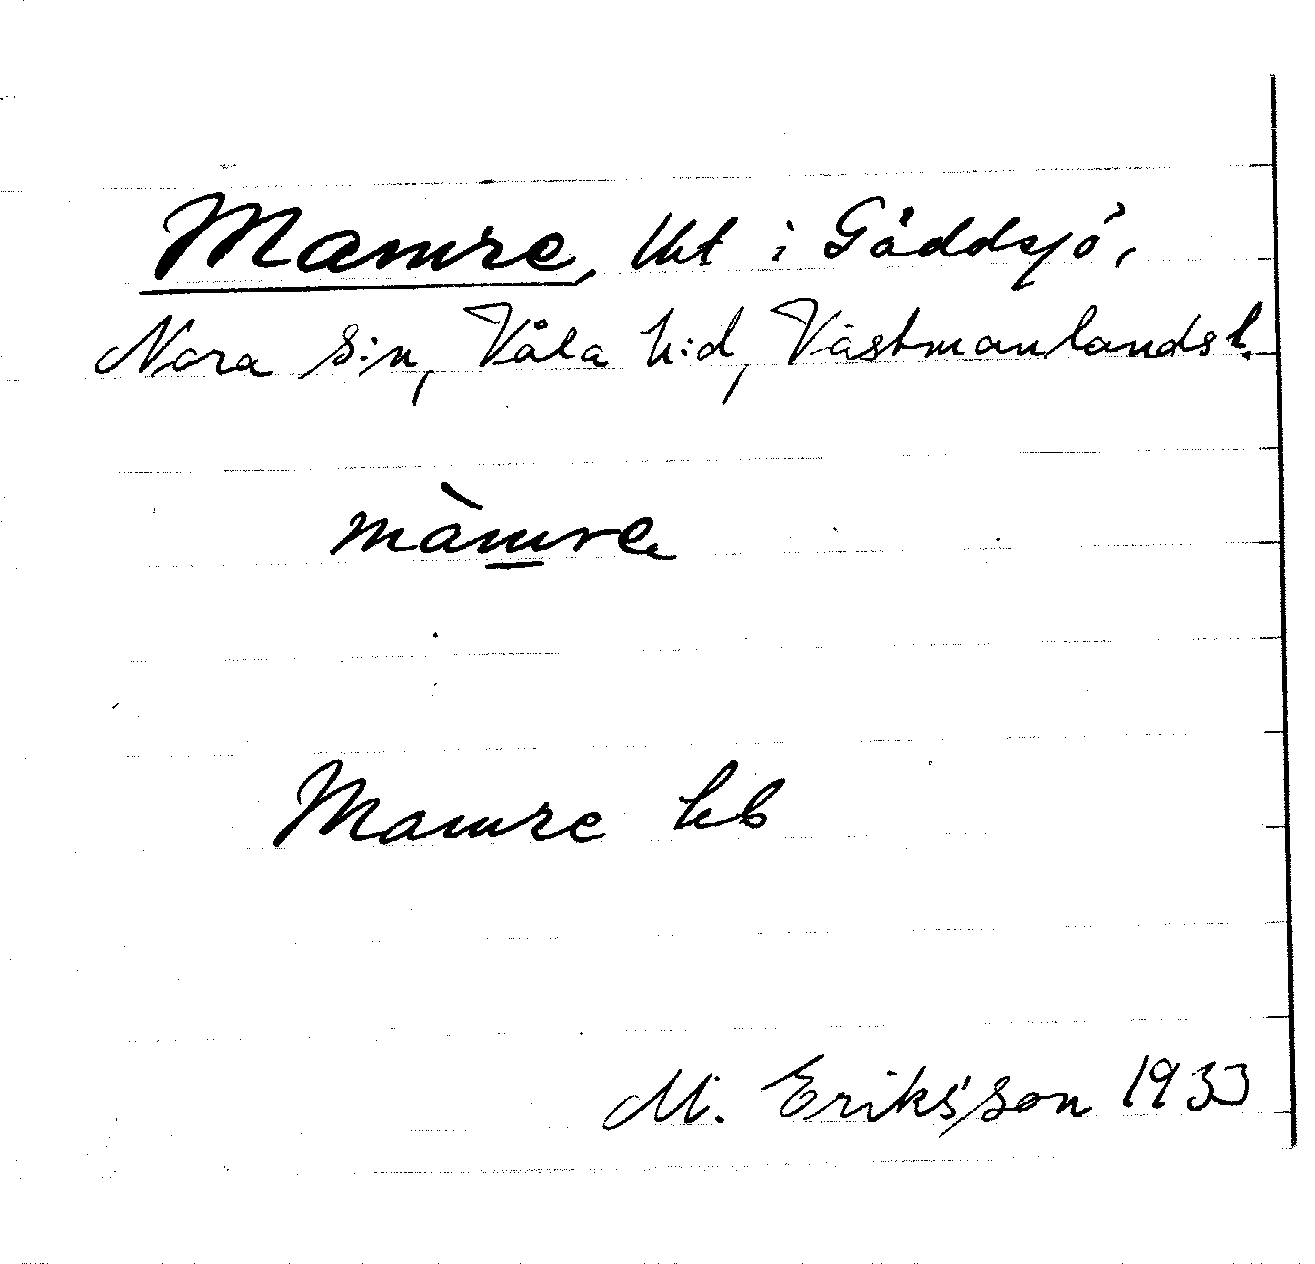 Mamre, lht i Gäddsjö,
Nora s:n, Våla h:d, Västmanlands l.
màmre
Mamre kb
M. Eriksson 1933